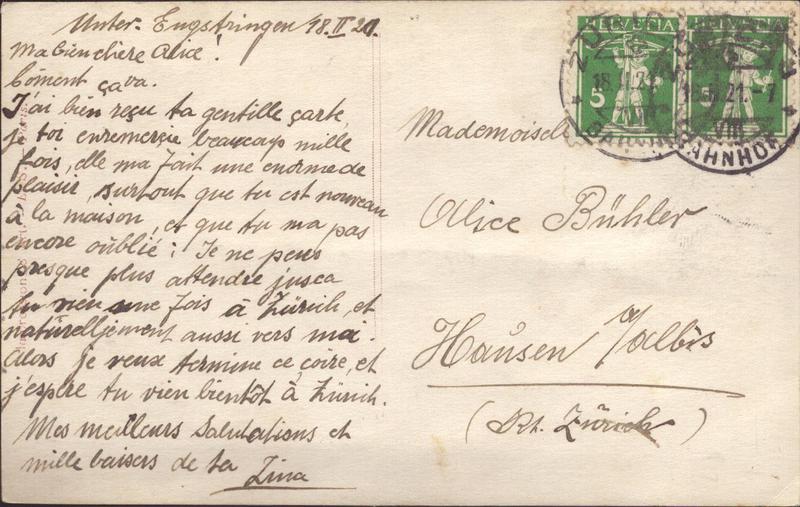 Unter-Engstringen 18.II 21.
Ma bien chère Alice!
Coment çava.
J'ai bien reçu ta gentille carte,
je toi enremercie beaucoup mille
fois, elle ma fait une enorme de
plaisir, surtout que tu est nouveau
à la maison, et que tu ma pas
encore oublié; Je ne peus
presque plus attendre jusca
tu vien une fois à Zürich, et
naturelljement aussi vers moi.
Alors je veux termine ce çoire, et
j'espère tu vien bientôt à Zürich.
Mes meilleurs Salutations et
mille baisers de ta
Zina
HELVETIA HELVETIA
5
BAHNHOF
VIII
Mademoiselle
Alice Bühler
Hausen a/Albis
(Kt. Zürich)